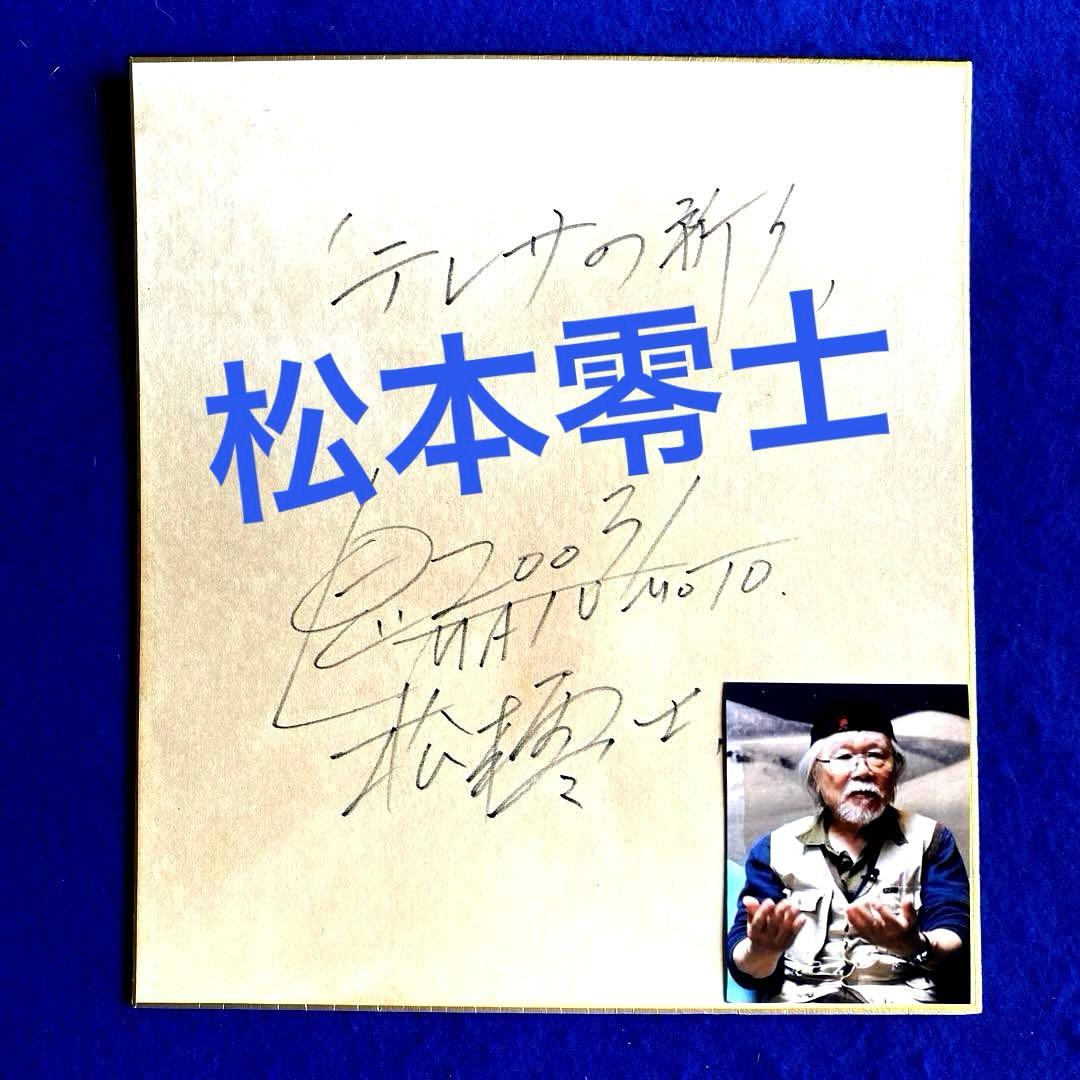 「テレサの祈り」
松本零士
2003
MATUMOTO.
松本零士